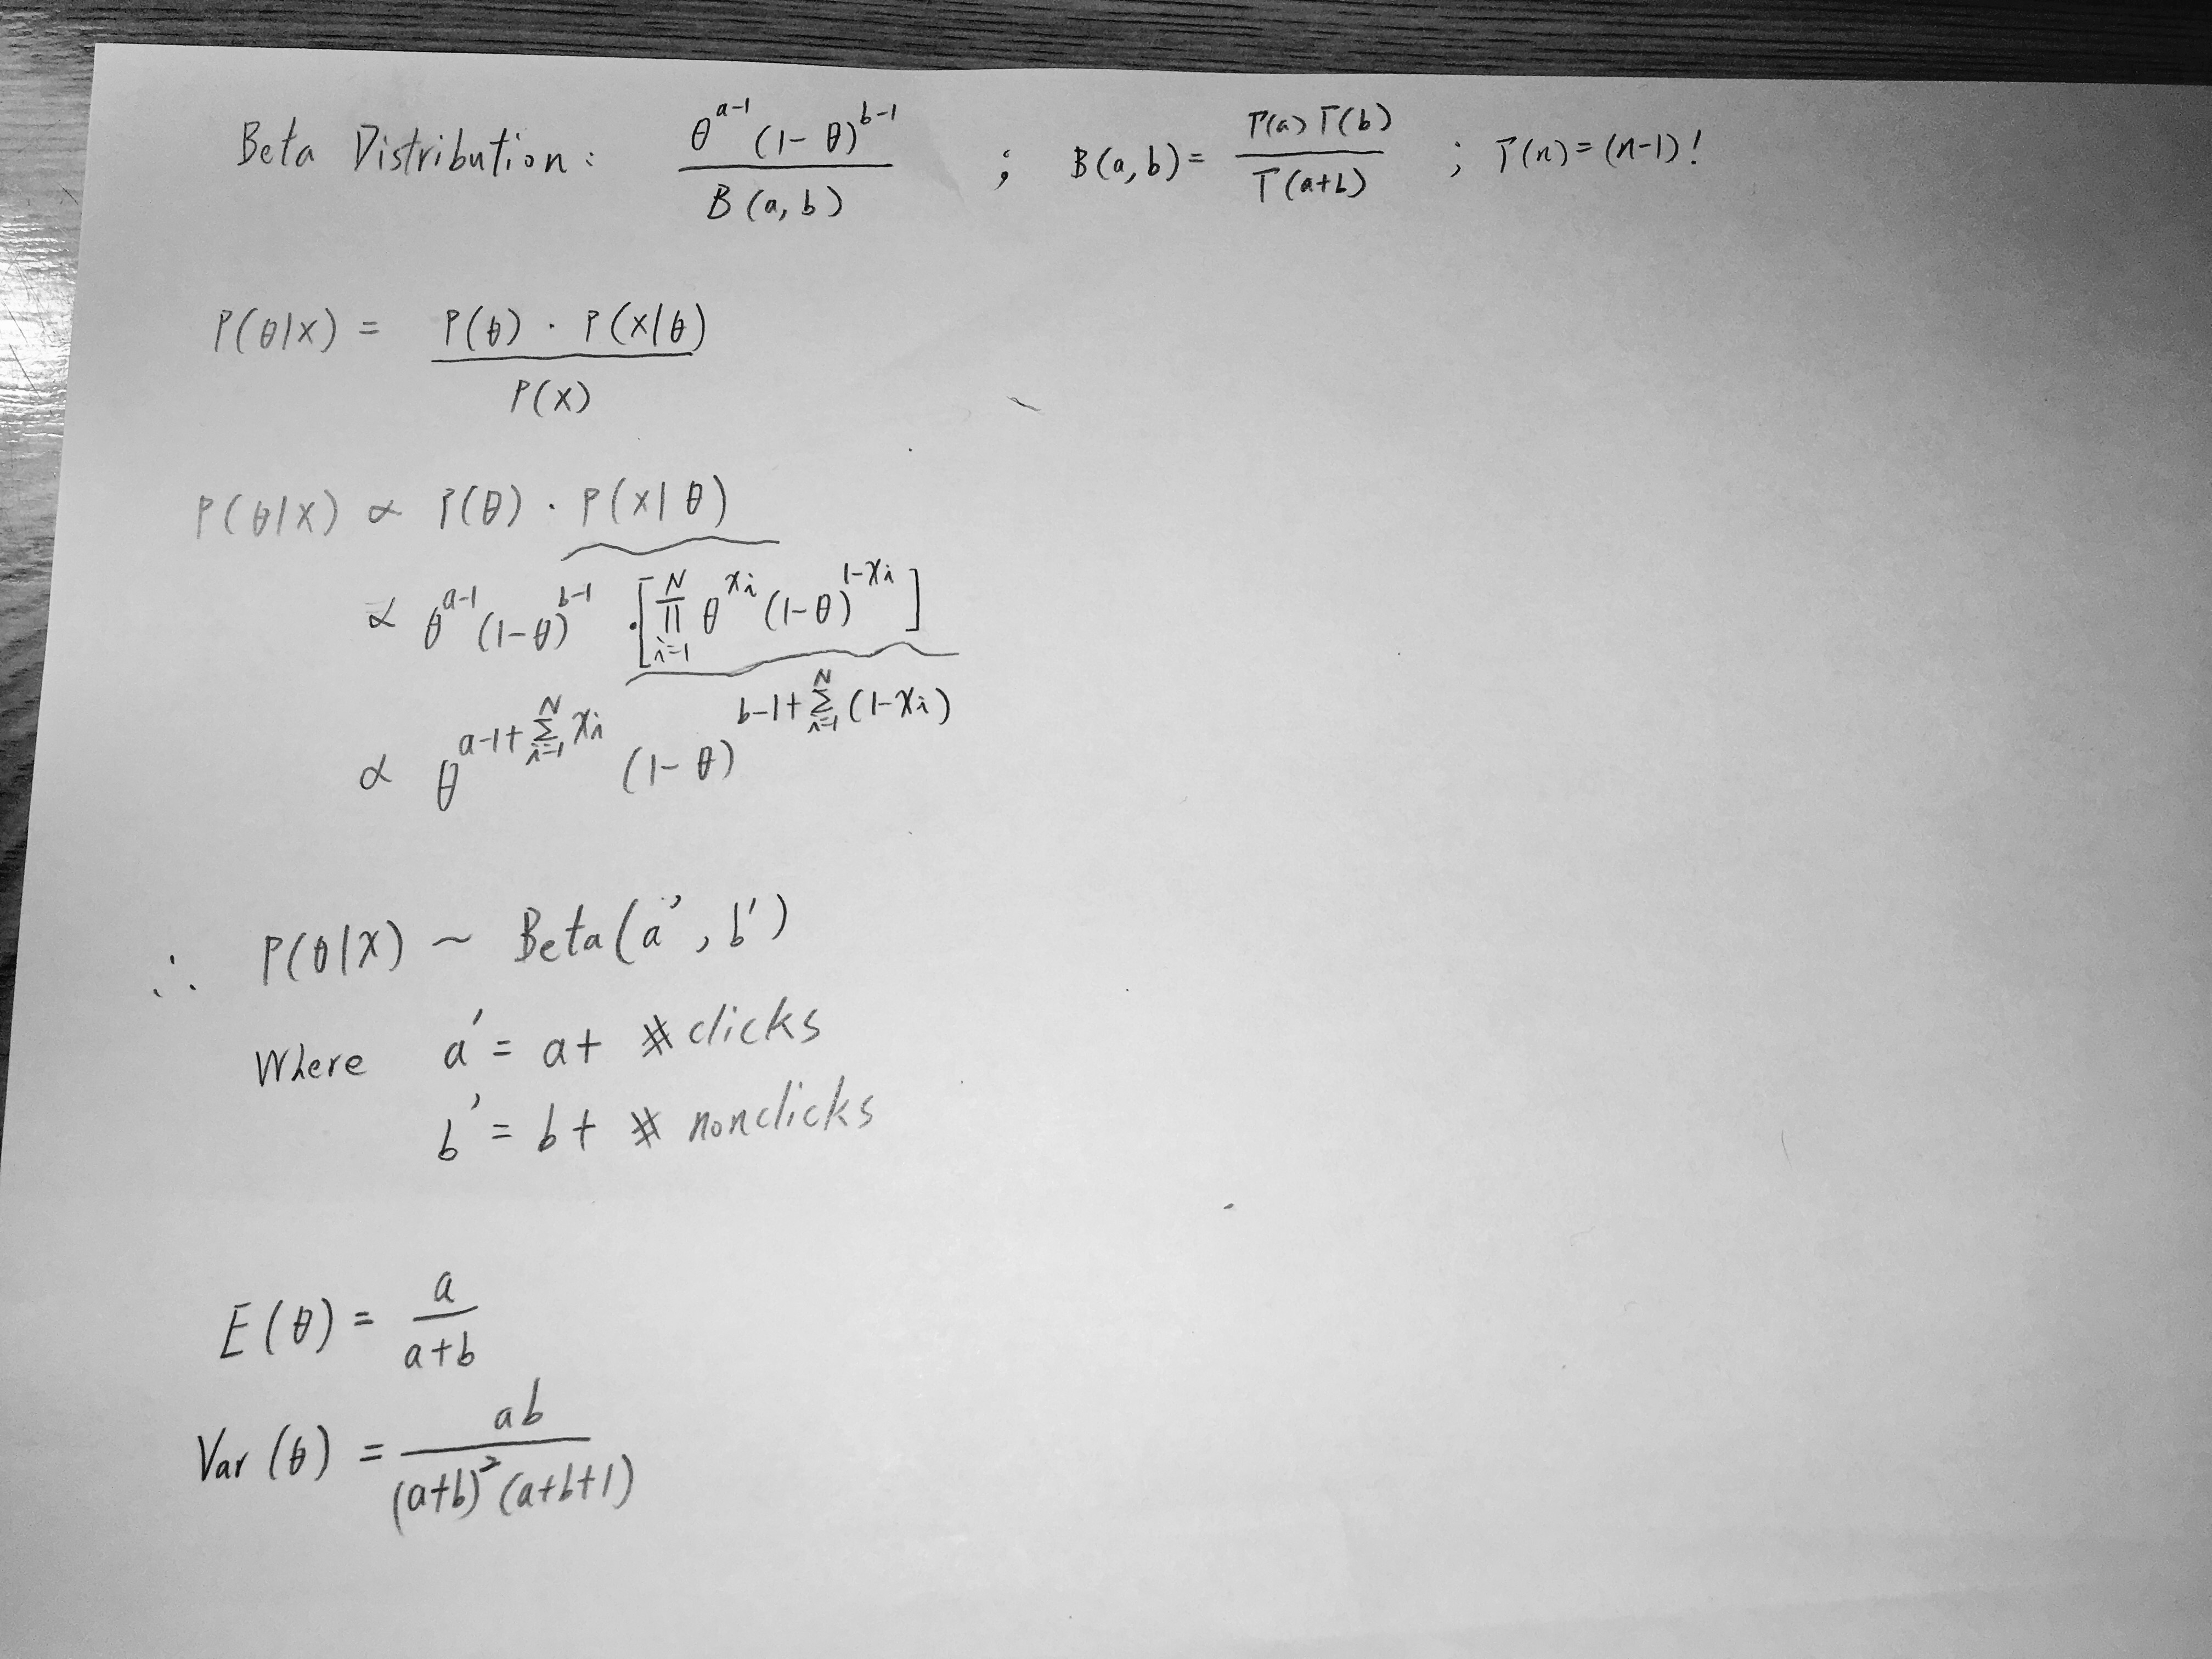 Beta Distribution: θ^(a-1) (1-θ)^(b-1) / B(a,b) ; B(a,b) = Γ(a)Γ(b) / Γ(a+b) ; Γ(n) = (n-1)!
P(θ|X) = P(θ) · P(X|θ) / P(X)
P(θ|X) ∝ P(θ) · P(X|θ)
∝ θ^(a-1) (1-θ)^(b-1) · [∏_{i=1}^{N} θ^(x_i) (1-θ)^(1-x_i)]
∝ θ^(a-1+∑_{i=1}^{N} x_i) (1-θ)^(b-1+∑_{i=1}^{N} (1-x_i))
∴ P(θ|X) ~ Beta(a', b')
Where a' = a + # clicks
b' = b + # nonclicks
E(θ) = a / (a+b)
Var(θ) = ab / ((a+b)^2 (a+b+1))